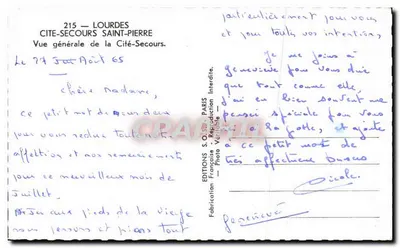 215 — LOURDES
CITE-SECOURS SAINT-PIERRE
Vue générale de la Cité-Secours.
Le 27 Août 65
Chère Madame,
ce petit mot de nous deux
pour vous redire toute notre
affection et nos remerciements
pour ce merveilleux mois de
Juillet.
aux pieds de la vierge
nous pensons et prions tout
particulièrement pour vous
et pour toutes vos intentions,
Je me joins à
geneviève pour vous dire
que tout comme elle,
j'ai eu bien souvent une
pensée spéciale pour vous
à la grotte, et ajoute
à ce petit mot de
très affectueux baisers
Nicole
geneviève
EDITIONS S.O.S. PARIS
Fabrication Française - Reproduction Interdite.